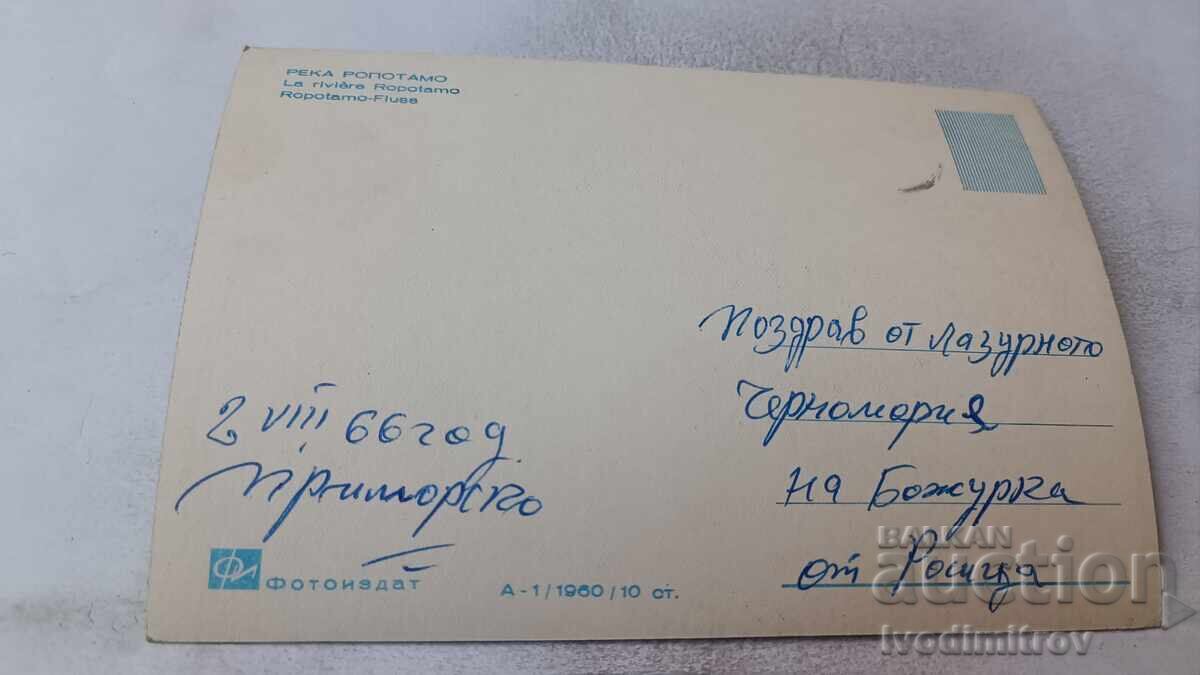 РЕКА РОПОТАМО
La rivière Ropotamo
Ropotamo-Fluss
Поздрав от Лазурното
Черномория
на Божурка
от Росица
2 VIII 66 год.
Приморско
ФОТОИЗДАТ
А-1/1960/10 ст.
BALKAN
auction
Ivodimitrov